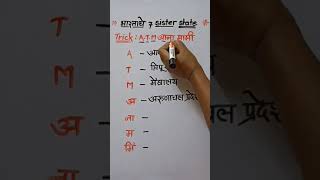 भारताचे 7 sister state
Trick: A T M आना मामी
A – आ
T – त्रिपू
M – मेघालय
अ – अरुणाचल प्रदेश
ना –
म –
मि –